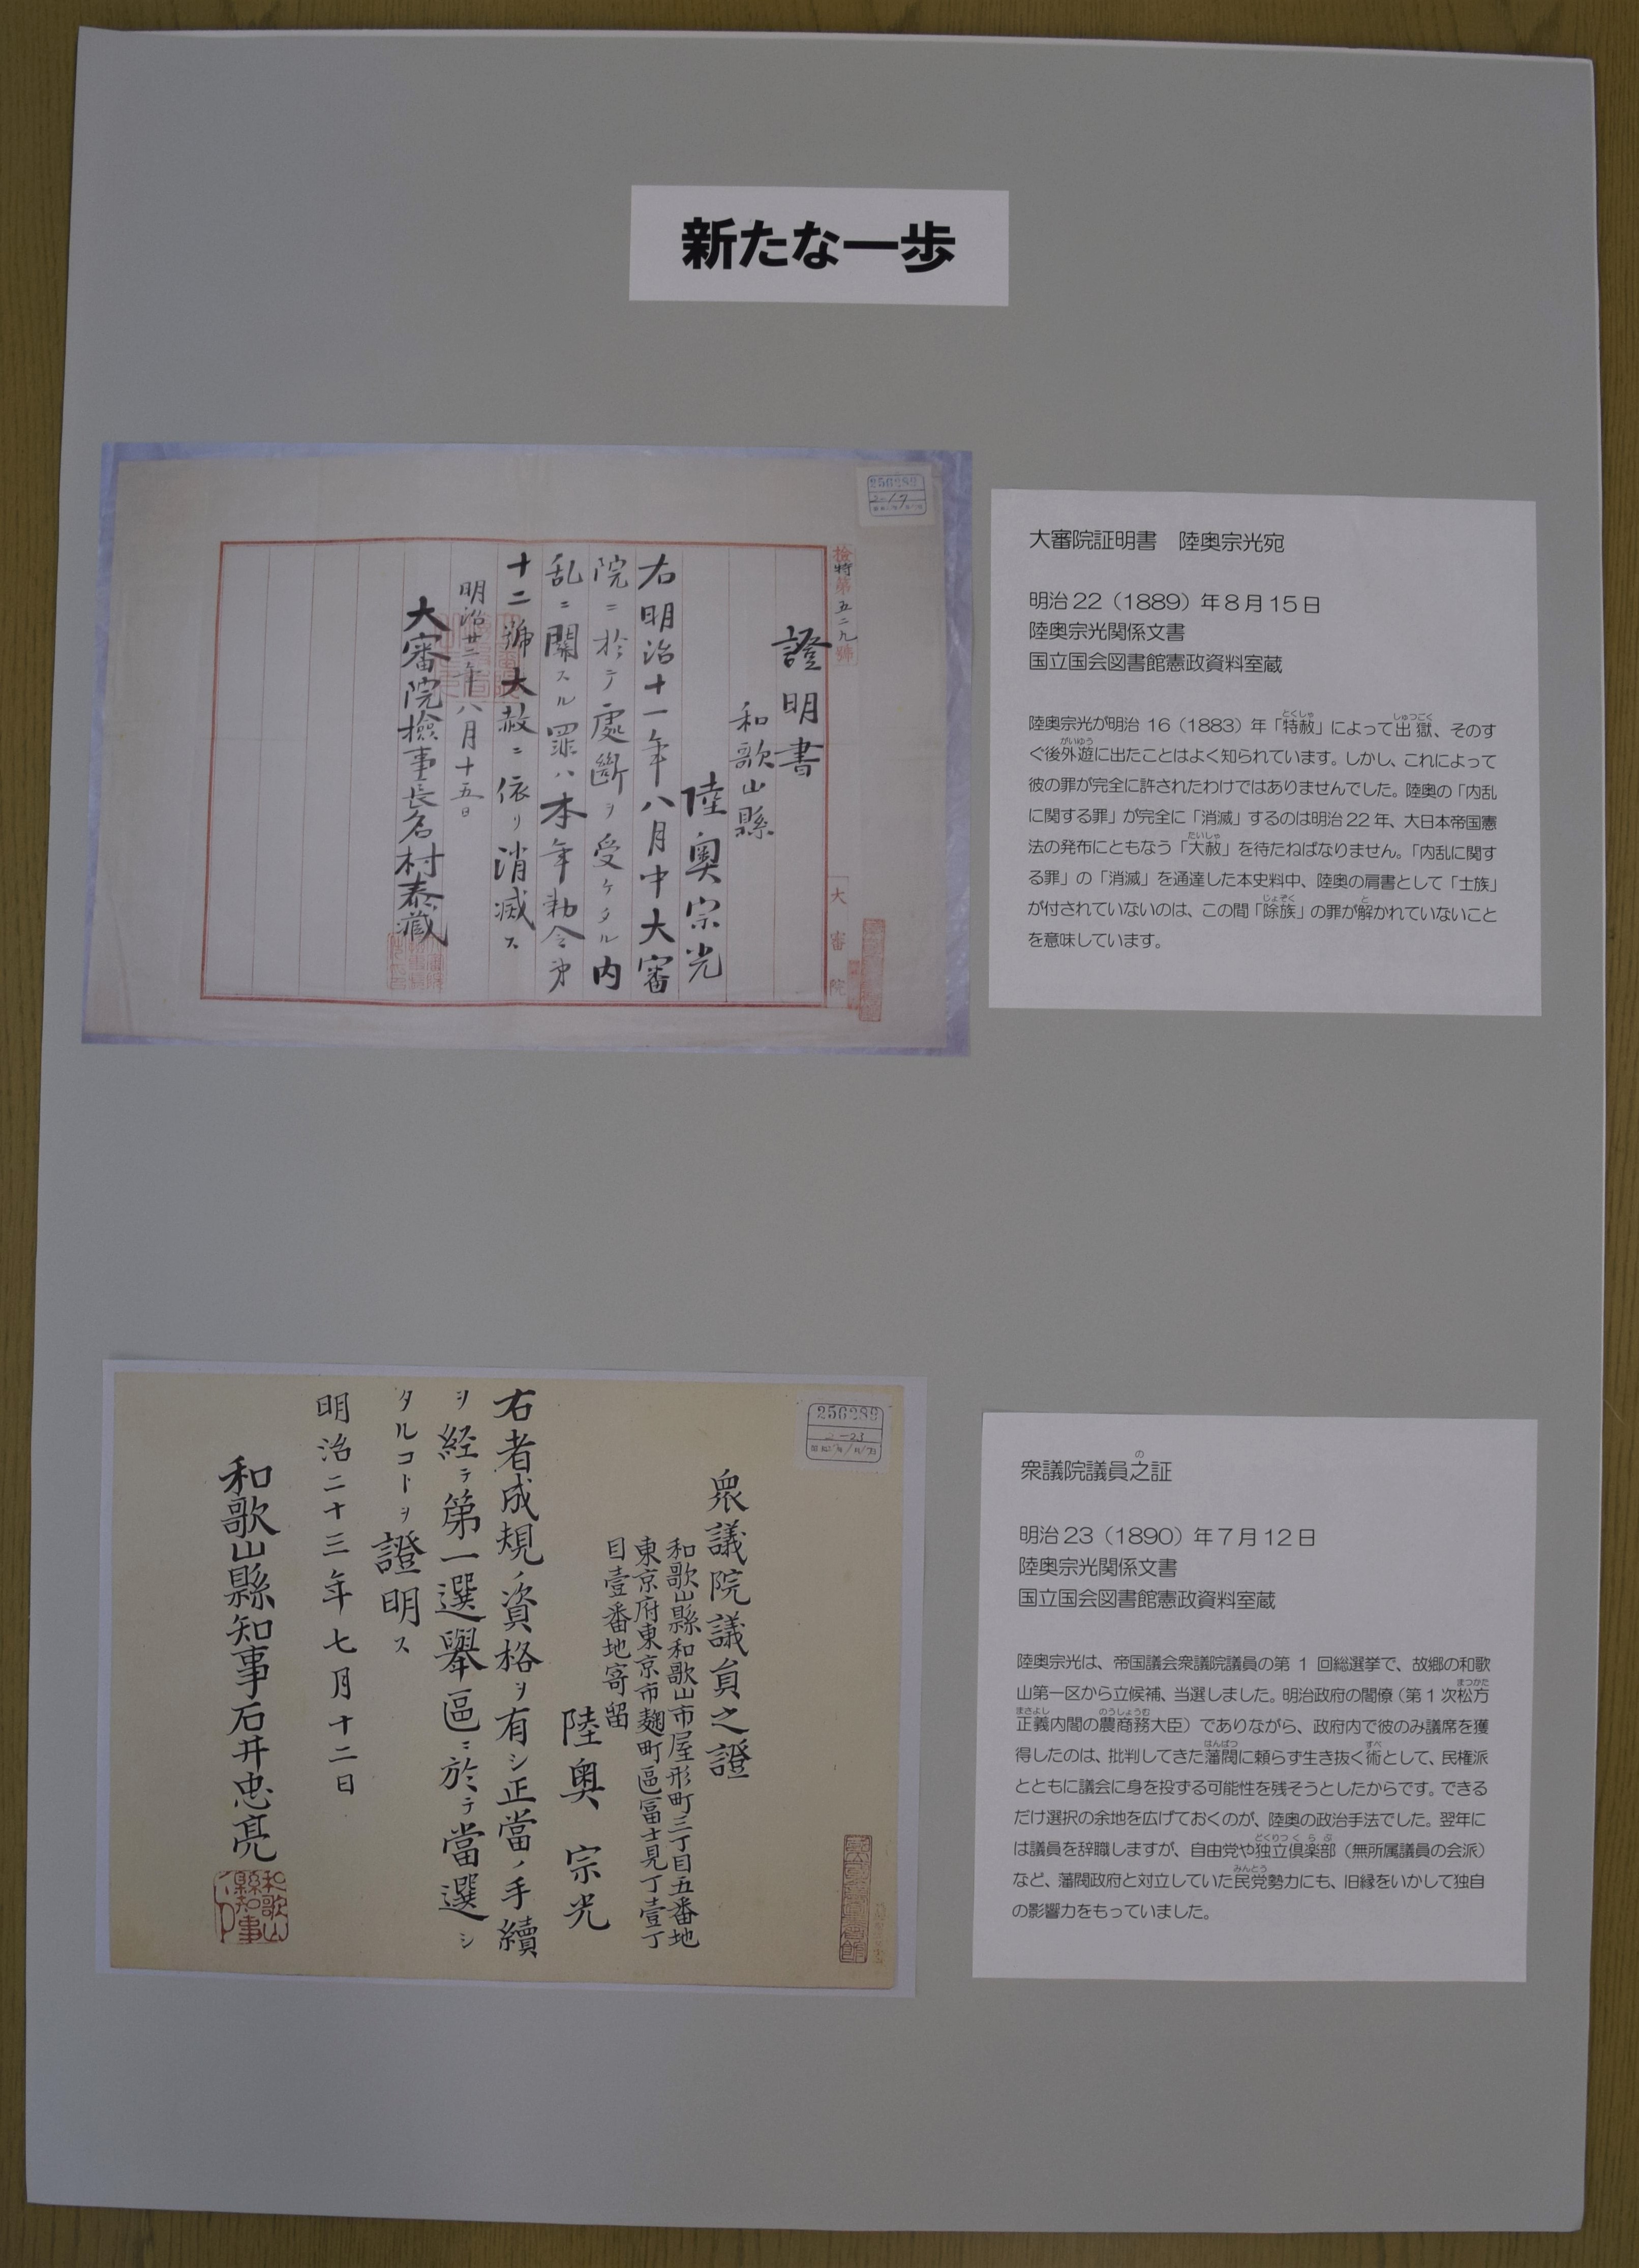 新たな一歩
256282
2-17
検特第五二九號
證明書
和歌山縣
陸奥宗光
右明治十一年八月中大審
院ニ於テ處斷ヲ受ケタル内
乱ニ關スル罪ハ本年勅令第
十二號大赦ニ依リ消滅ス
明治廿二年八月十五日
大審院檢事長名村泰蔵
大審院
大審院証明書 陸奥宗光宛
明治22(1889)年8月15日
陸奥宗光関係文書
国立国会図書館憲政資料室蔵
陸奥宗光が明治16(1883)年「特赦」によって出獄、そのす
ぐ後外遊に出たことはよく知られています。しかし、これによって
彼の罪が完全に許されたわけではありませんでした。陸奥の「内乱
に関する罪」が完全に「消滅」するのは明治22年、大日本帝国憲
法の発布にともなう「大赦」を待たねばなりません。「内乱に関す
る罪」の「消滅」を通達した本史料中、陸奥の肩書として「士族」
が付されていないのは、この間「除族」の罪が解かれていないこと
を意味しています。
256282
2-23
衆議院議員之證
和歌山縣和歌山市屋形町三丁目五番地
東京府東京市麹町區冨士見丁壹丁
目壹番地寄留
陸奥宗光
右者成規ノ資格ヲ有シ正當ノ手續
ヲ経テ第一選擧區ニ於テ當選シ
タルコトヲ證明ス
明治二十三年七月十二日
和歌山縣知事石井忠亮
和歌山縣知事之印
衆議院議員之証
明治23(1890)年7月12日
陸奥宗光関係文書
国立国会図書館憲政資料室蔵
陸奥宗光は、帝国議会衆議院議員の第1回総選挙で、故郷の和歌
山第一区から立候補、当選しました。明治政府の閣僚(第1次松方
正義内閣の農商務大臣)でありながら、政府内で彼のみ議席を獲
得したのは、批判してきた藩閥に頼らず生き抜く術として、民権派
とともに議会に身を投ずる可能性を残そうとしたからです。できる
だけ選択の余地を広げておくのが、陸奥の政治手法でした。翌年に
は議員を辞職しますが、自由党や独立倶楽部(無所属議員の会派)
など、藩閥政府と対立していた民党勢力にも、旧縁をいかして独自
の影響力をもっていました。